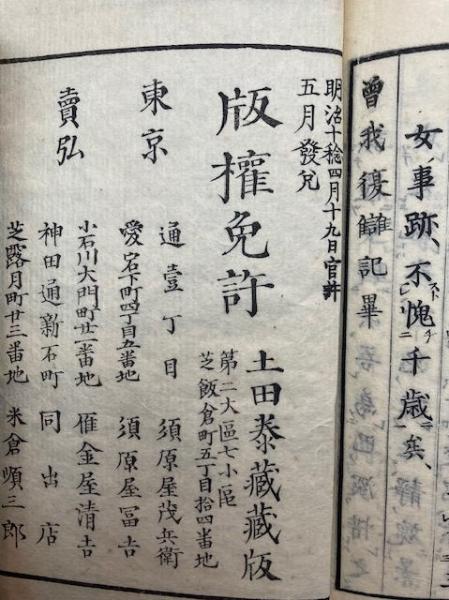 女事跡、不愧千歳矣、
曽我復讎記畢
明治十稔四月十九日官許
五月發兌
版權免許
土田泰藏藏版
第二大區七小區
芝飯倉町五丁目拾四番地
東京
賣弘
通壹丁目 須原屋茂兵衛
愛宕下町四丁目五番地 須原屋冨吉
小石川大門町廿一番地 雁金屋清吉
神田通新石町 同出店
芝露月町廿三番地 米倉順三郎